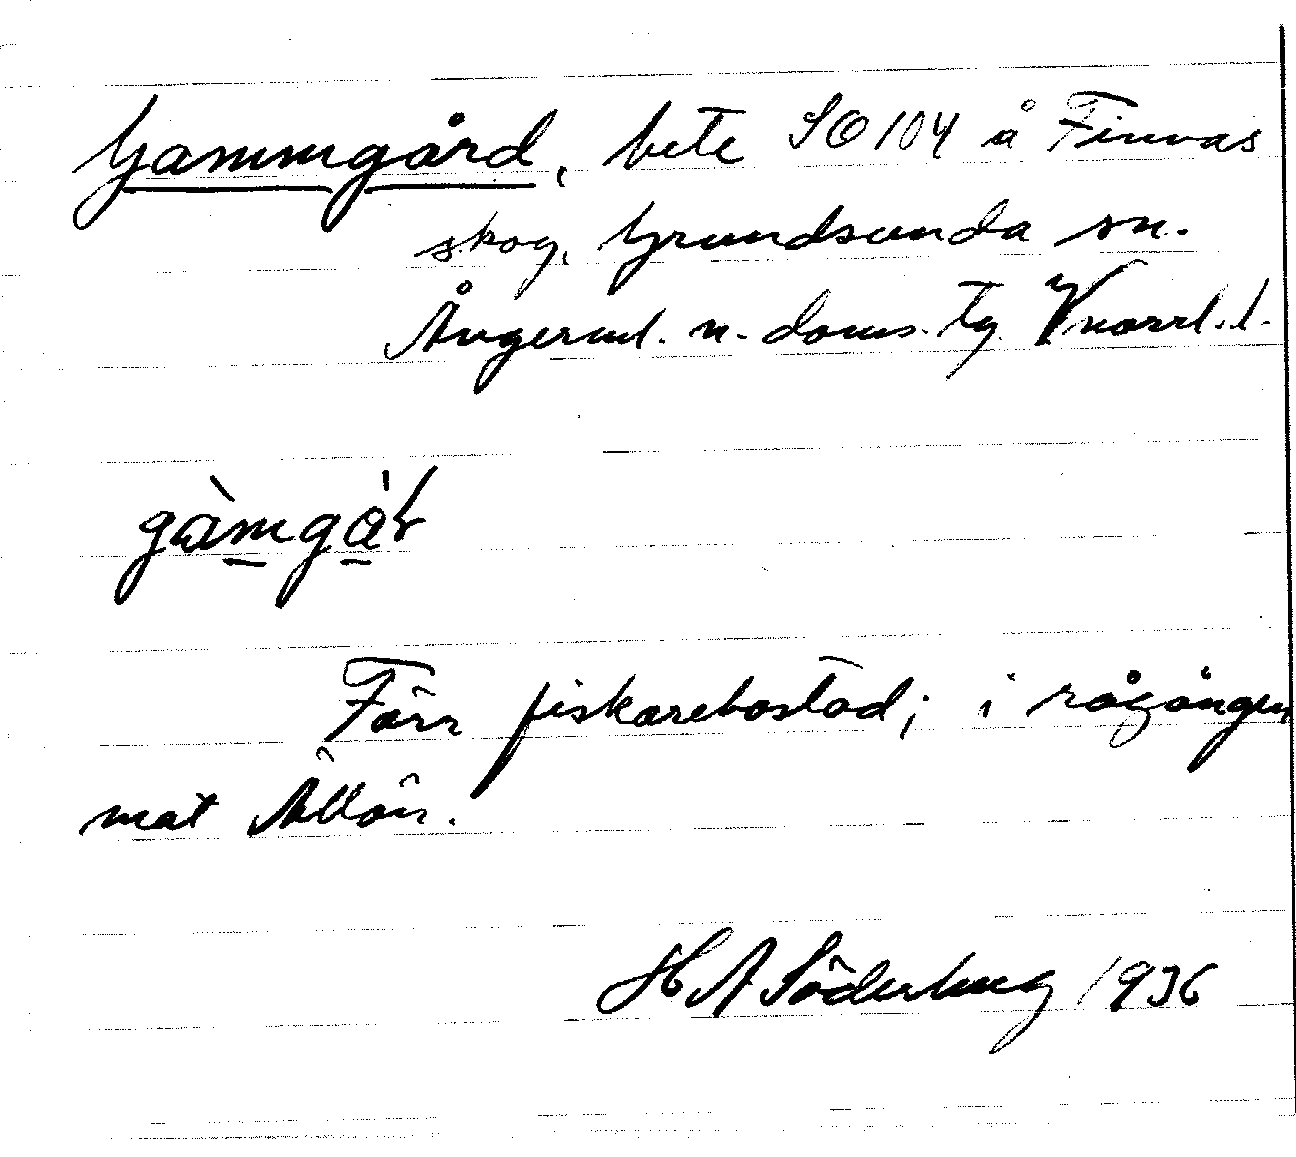 Gammgård, bete SO 104 å Finnas
skog, Grundsunda sn.
Ångerml. n. doms. tg Vnorrl. l.
gàmgàɽ
Förr fiskarebostad; i rågången
mot Ällön.
H A Söderberg 1936